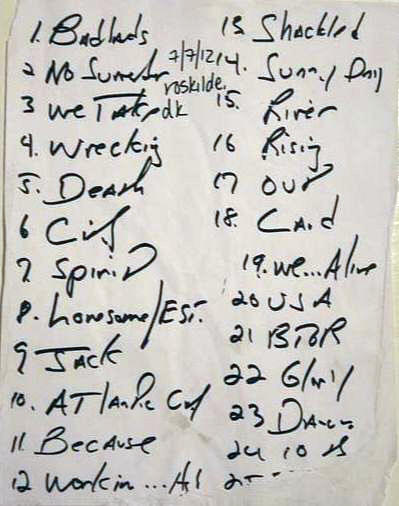 1. Badlands
2 No Surrender
3 We Take
7/7/12
roskilde,
dk
4. Wrecking
5. Death
6 City
7. Spirit
8. Lonesome/EST.
9 JACK
10. ATlantic City
11 Because
12 Workin...
13 Shackled
14. Sunny Day
15. River
16 Rising
17 OUT
18. Card
19. we...Alive
20 USA
21 BTOR
22 Glory
23 Dancin
24 10th
25